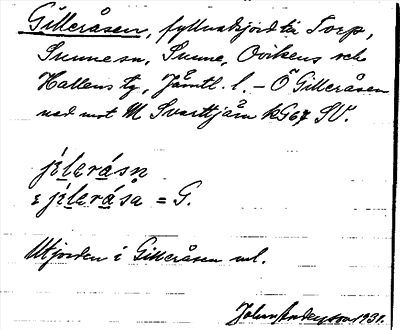 Gilleråsen, fyllnadsjord till Torp,
Sunne sn, Sunne, Ovikens och
Hallens tg, Jämtl. l. – Ö Gilleråsen
ned mot M Svarttjärn kG67 SV.
jìlerásn
i jìlerása = G.
Utjorden i Gilleråsen ml.
John Anderson 1931.